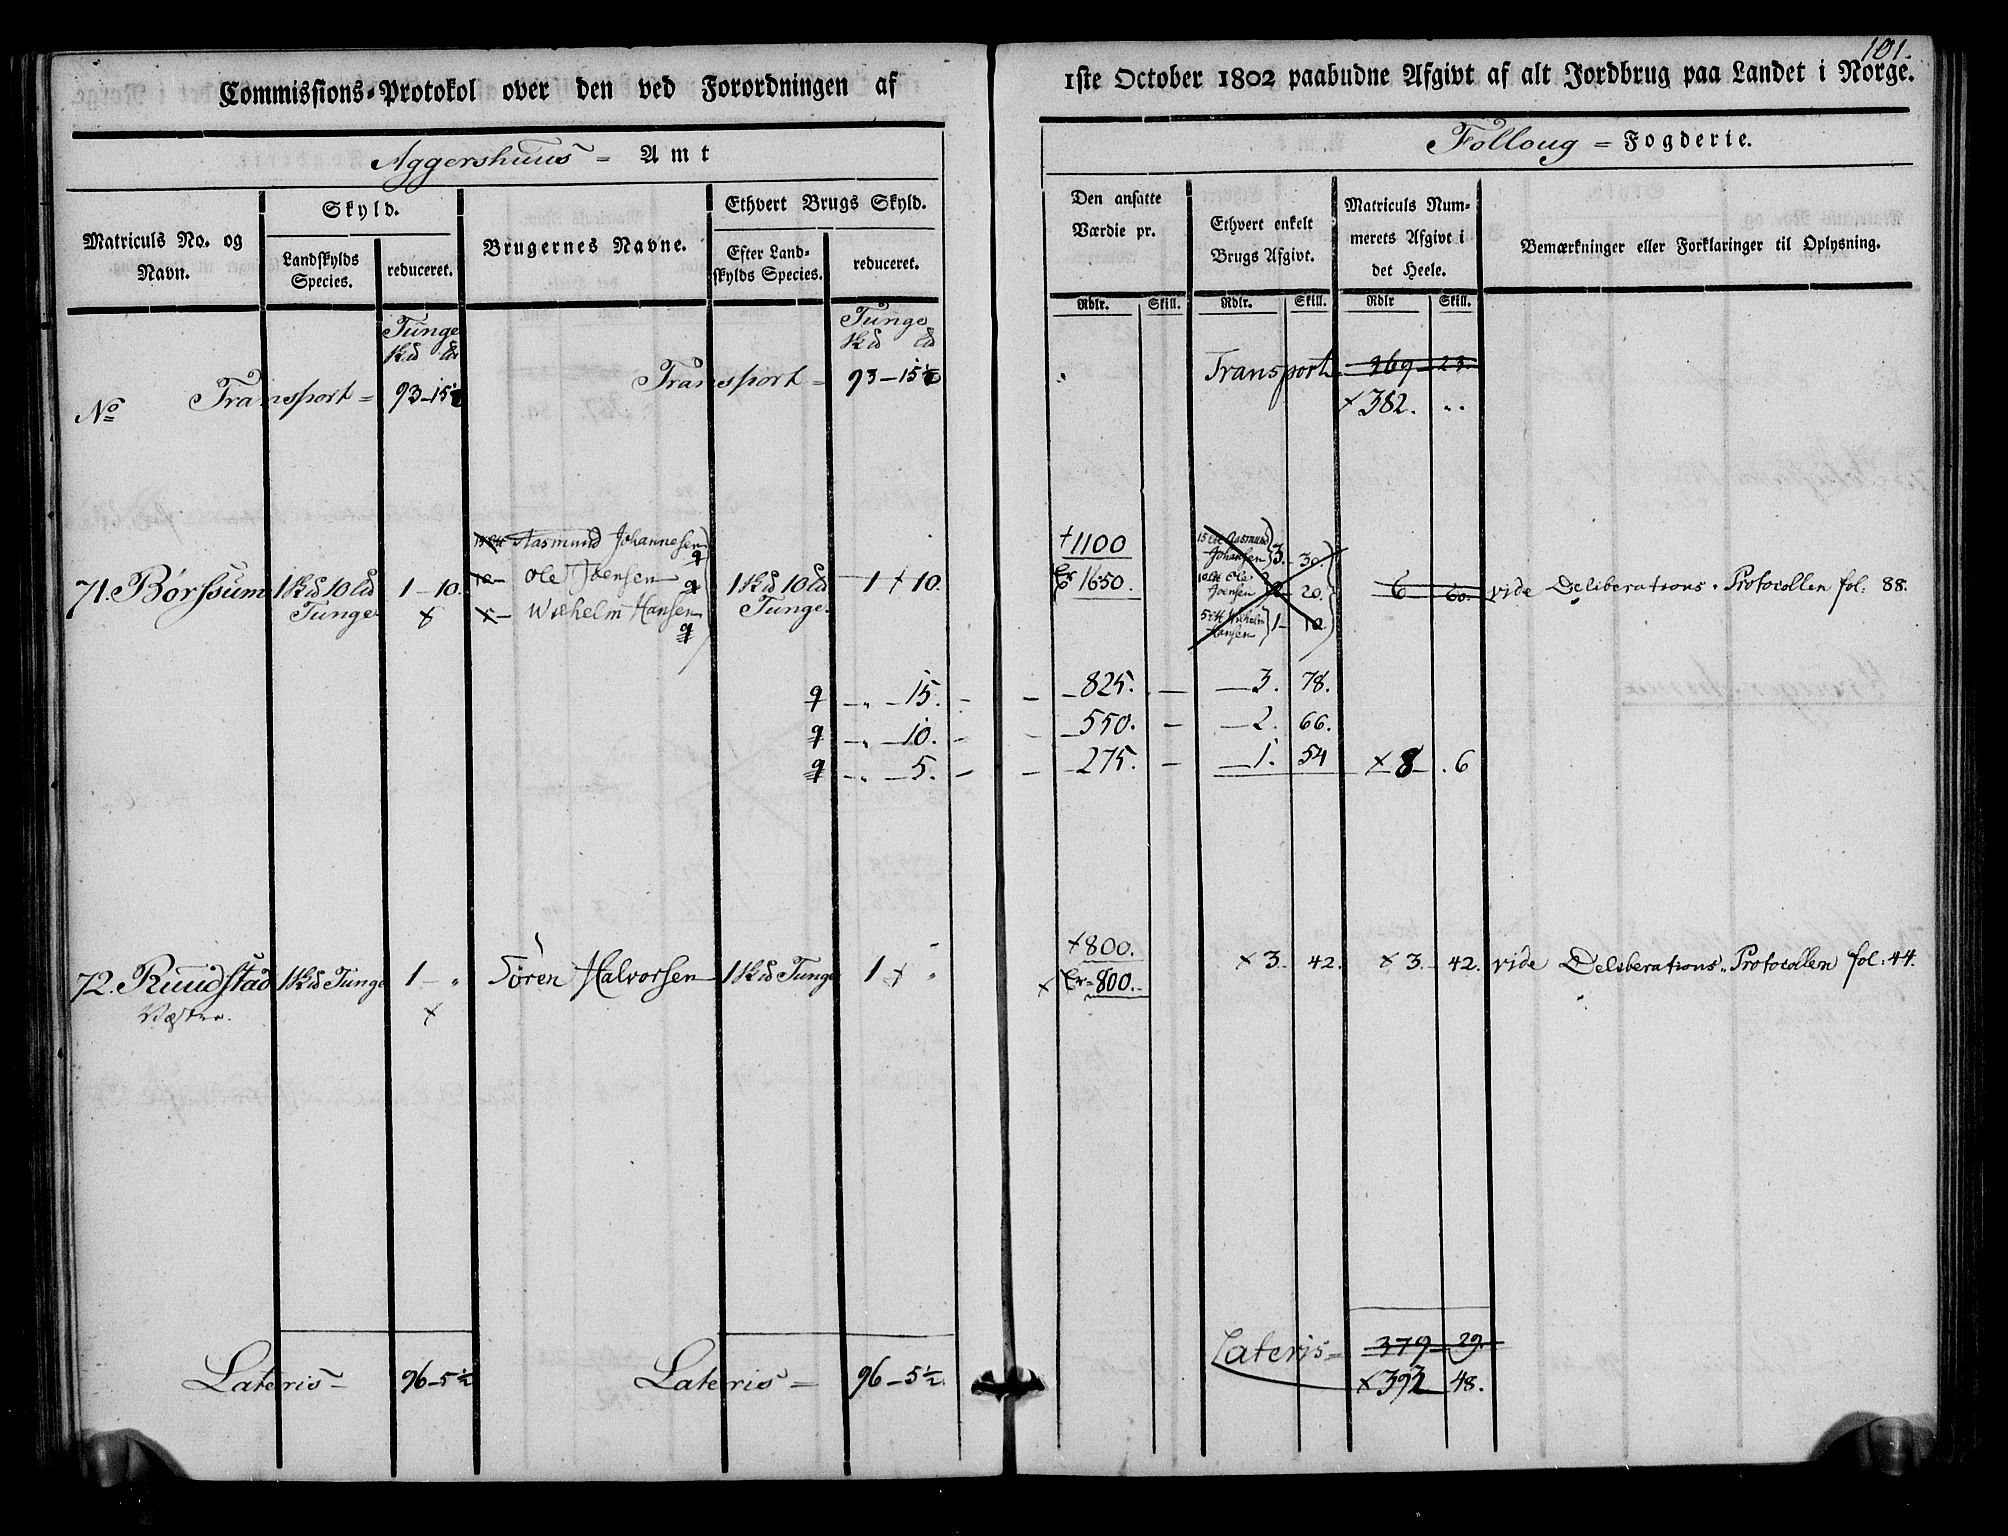 101.
Commissions-Protokol over den ved Forordningen af 1ste October 1802 paabudne Afgivt af alt Jordbrug paa Landet i Norge.
Aggershuus = Amt
Folloug = Fogderie.
Matriculs No. og Navn.
Skyld.
Landskylds Species.
reduceret.
Brugernes Navne.
Ethvert Brugs Skyld.
Efter Landskylds Species.
reduceret.
Den ansatte Værdie pr.
Rdlr. Skill.
Ethvert enkelt Brugs Afgivt.
Rdlr. Skill.
Matriculs Nummerets Afgivt i det Heele.
Rdlr Skill.
Bemærkninger eller Forklaringer til Oplysning.
Tunge
Tunge
No Transport = 93-15½ Transport = 93-15½ Transport 369 23.
×382. „.
Aasmund Johannesen
+1100
15 Aasmund Johansen 3. 30.
71. Børssum 1 10 Tunge 1-10. 10 Ole Joensen 1 10 Tunge 1 × 10. 1650. 10 Ole Joensen 2 20. 6 60. vide Deliberations-Protocollen fol: 88.
Wilhelm Hansen
5 Wilhelm Hansen 1- 10
„ 15. 825. 3. 78.
„ 10. 550. 2. 66.
„ 5. 275. 1. 54 ×8 . 6
+800.
72. Ruudstad 1 Tunge 1 - „ Søren Halvorsen 1 Tunge 1 × „ × 800. ×3. 42. ×3. 42. vide Deliberations-Protocollen fol: 44.
Væstre.
Lateris = 96-5½ Lateris = 96-5½. Lateris = 379 29.
×393 48.